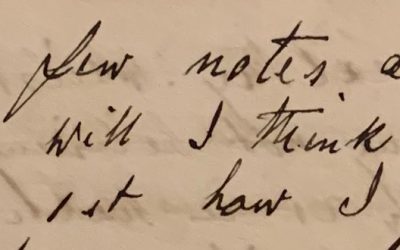 few notes
will I think
1st how I